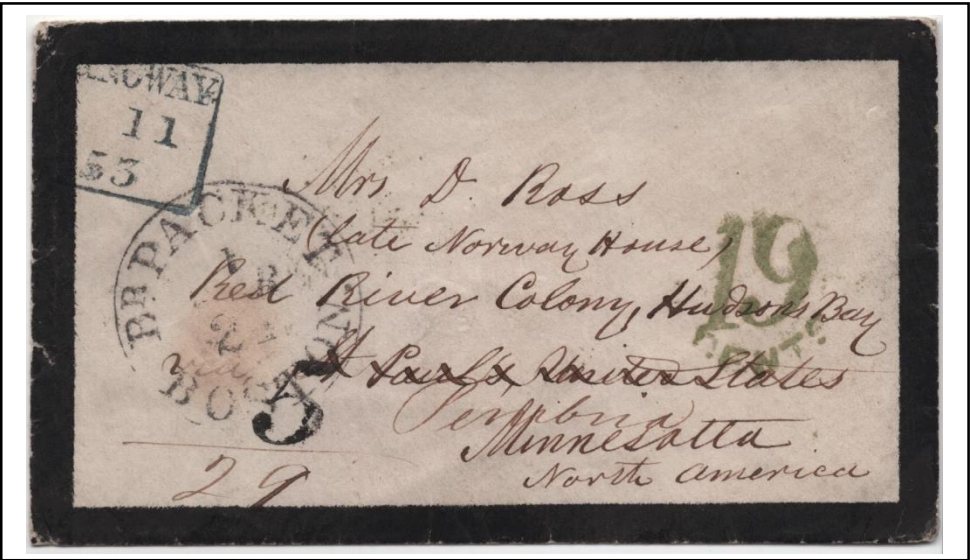 NGWAY
11
53
BR PACKET
BOSTON
Mrs. D. Ross
(late Norway House)
Red River Colony, Hudsons Bay
19
CENTS
via St Paul's United States
5
Pembina
Minnesotta
29
North America